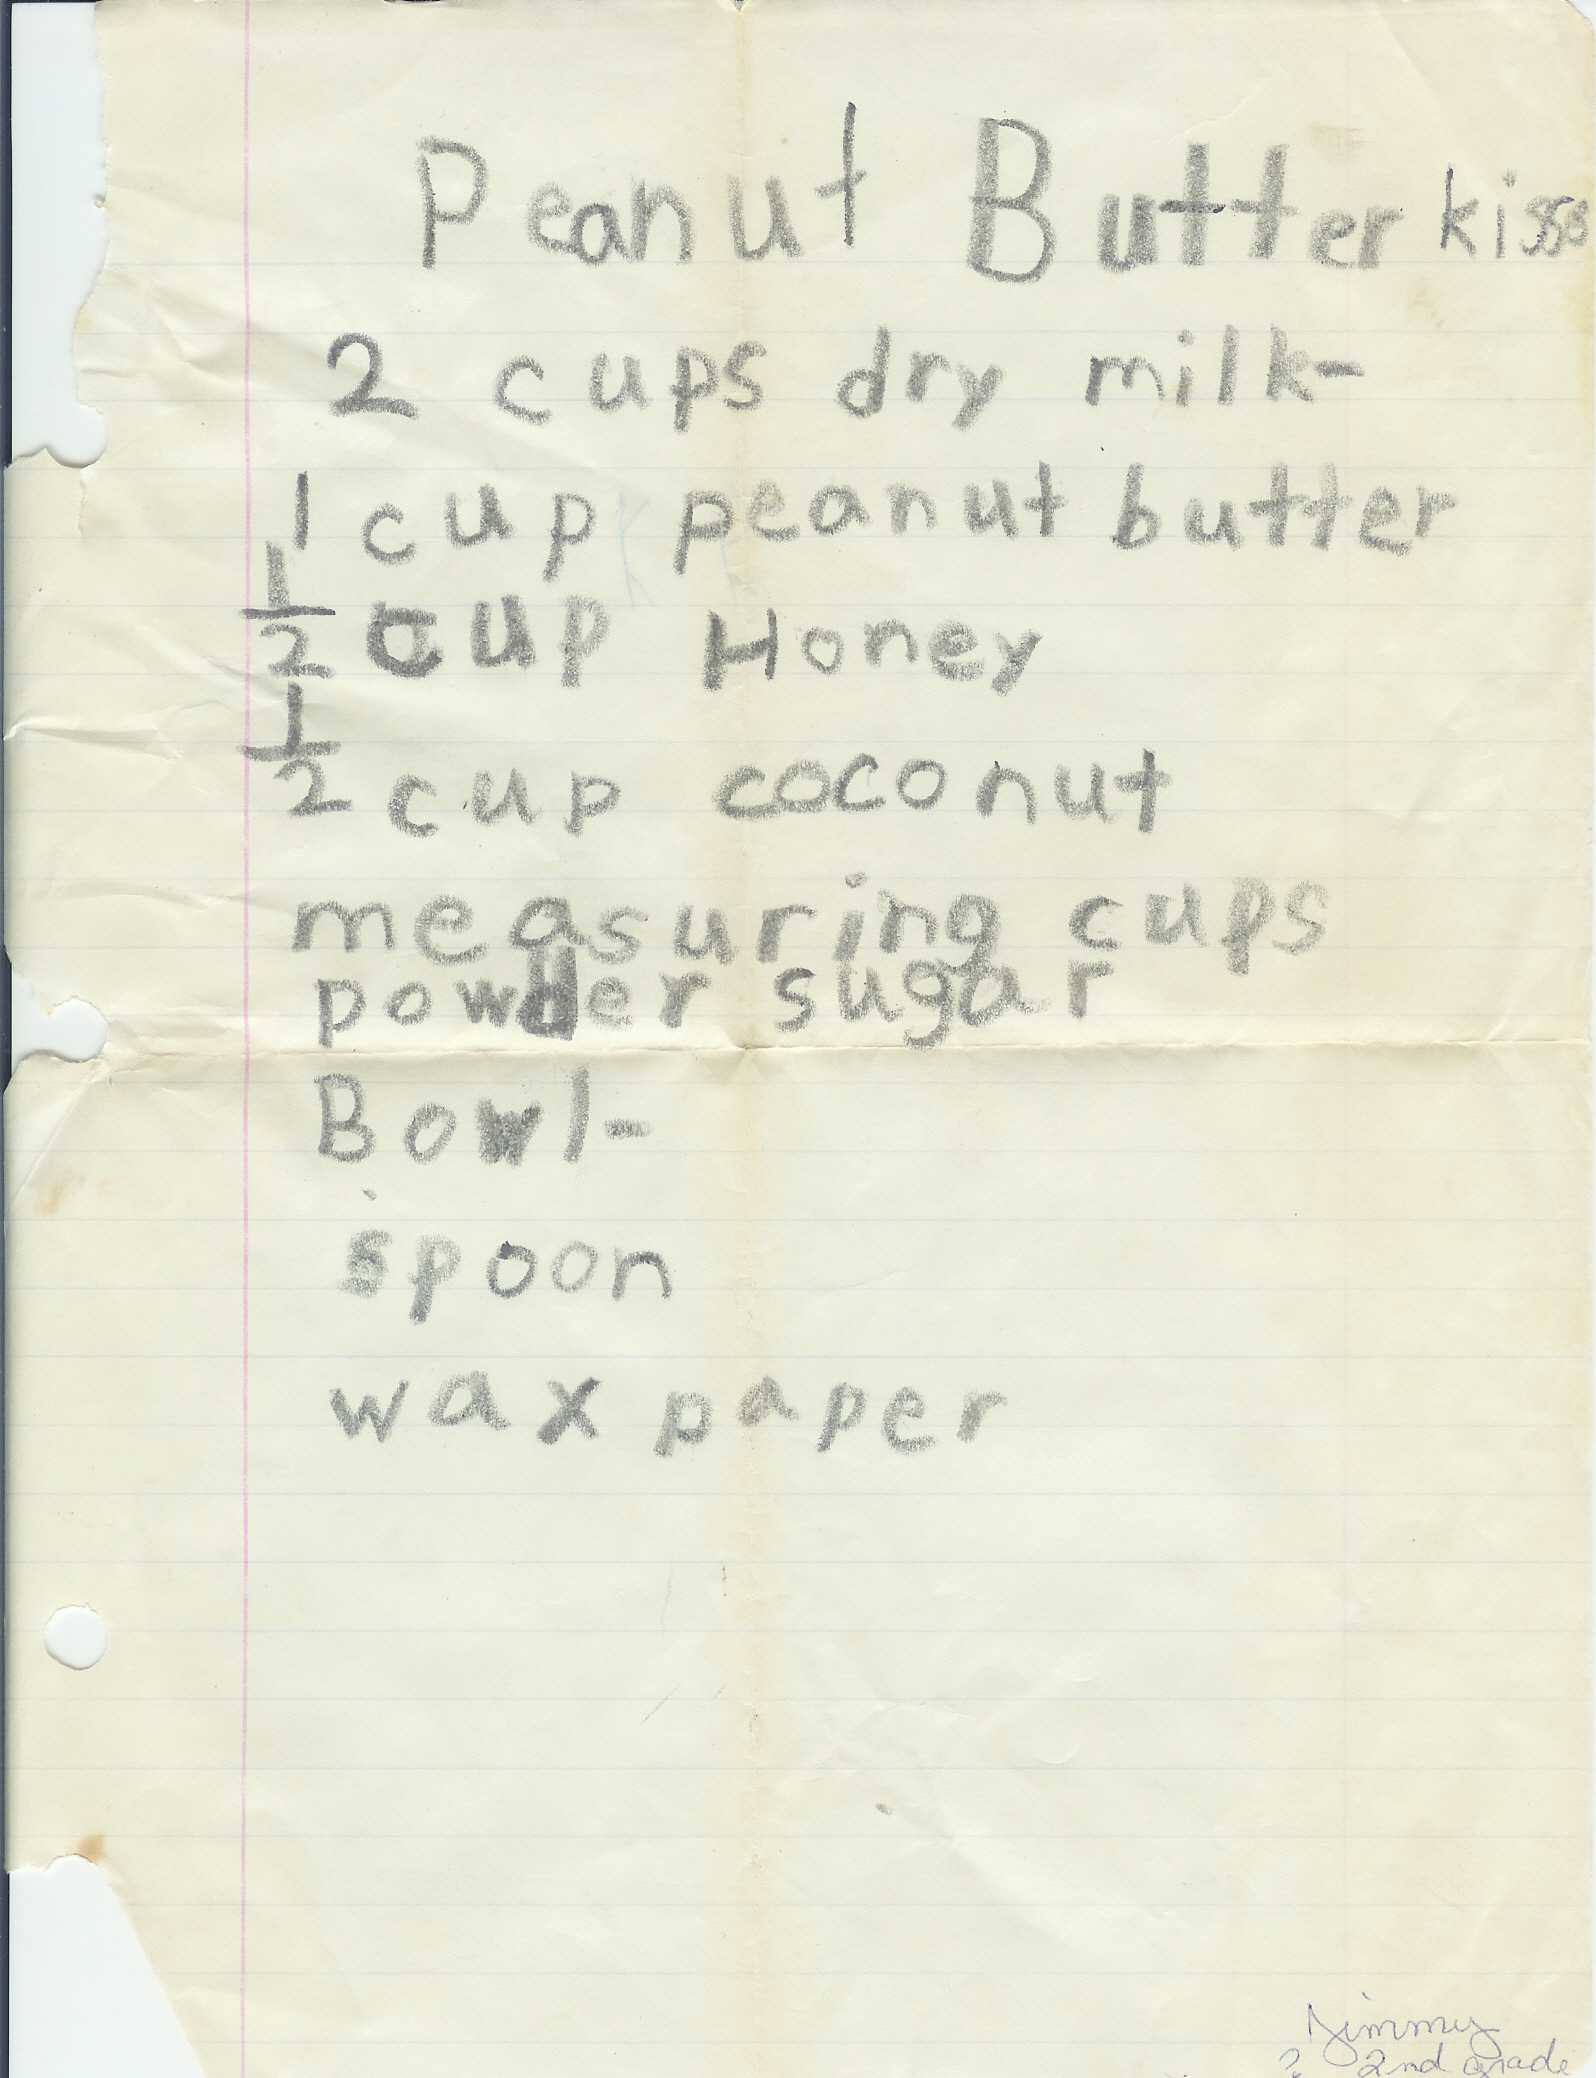 Peanut Butter kisses
2 cups dry milk-
1 cup peanut butter
1/2 cup Honey
1/2 cup coconut
measuring cups
powder sugar
Bowl-
spoon
wax paper
Jimmy
? 2nd grade